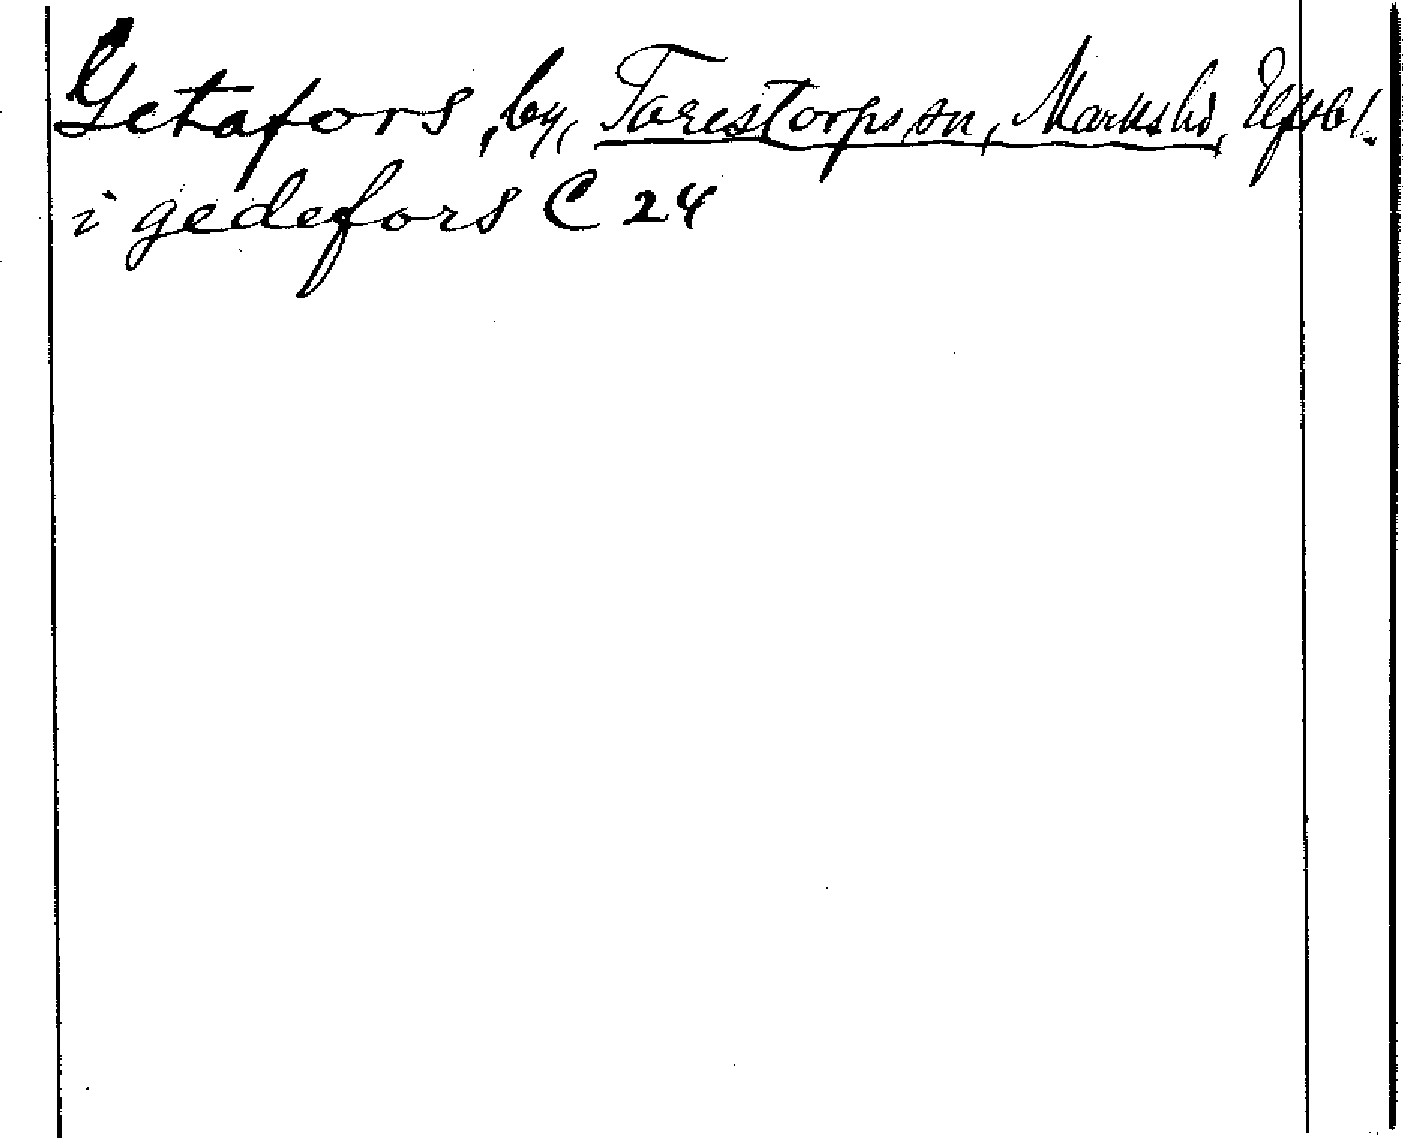 Getafors, by, Torestorps sn, Marks hd, Elfsb l.
i gedefors C 24